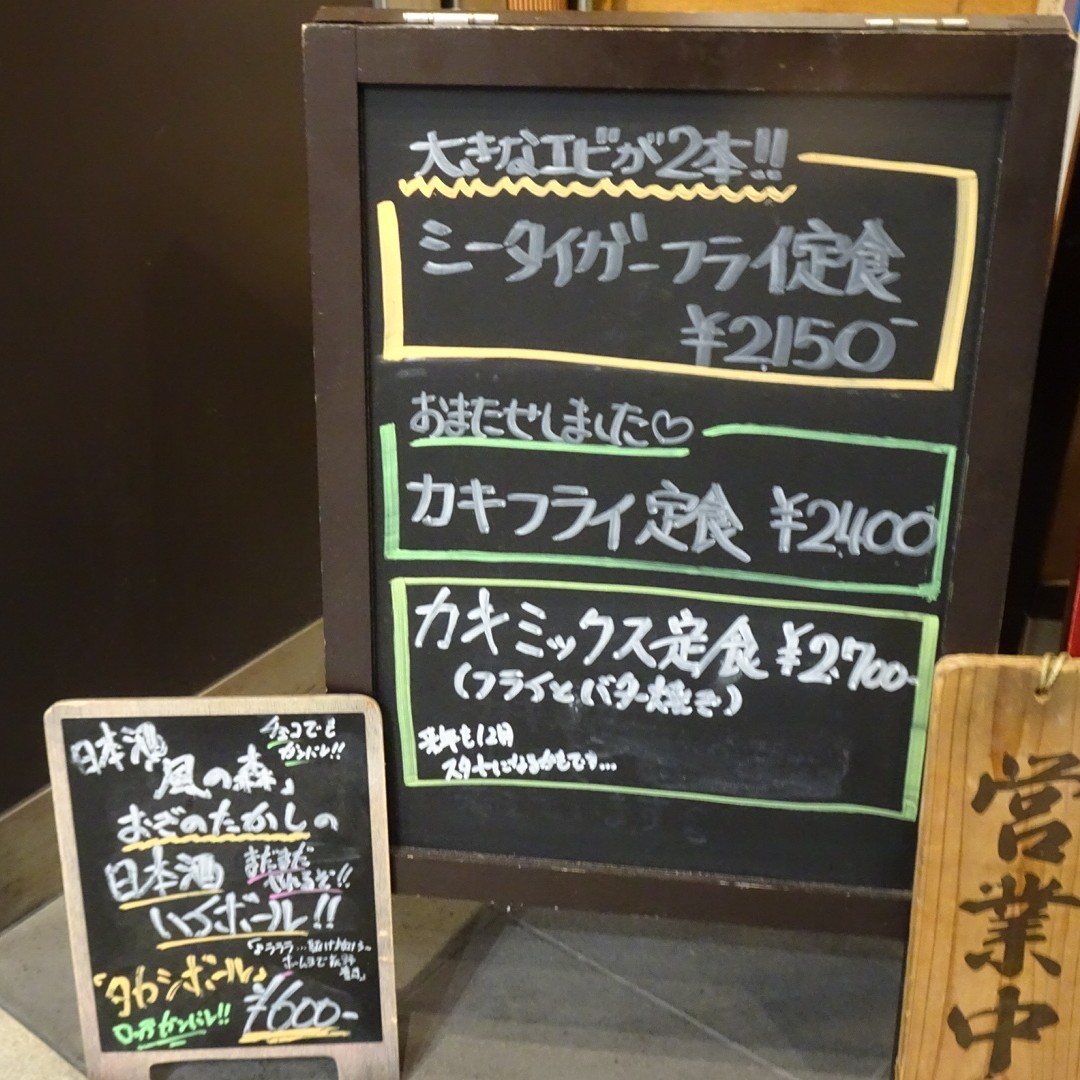 大きなエビが2本!!
ミータイガーフライ定食
¥2,150-
おまたせしました♡
カキフライ定食 ¥2,400-
カキミックス定食 ¥2,700-
(フライとバター焼き)
スタートになるかもです…
日本酒
チェコでも
ガンバレ!!
「風の森」
おぎのたかしの
日本酒 まだまだ
やれるぞ!!
ハイボール!!
「タカシボール」
¥600-
ガンバレ!!
営業中